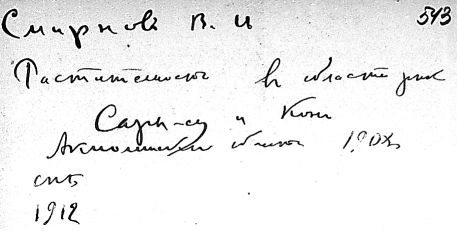 Смирнов В. И 543
Растительность в области рек
Сары-су и
Акмолинской области 1908
спб
1912